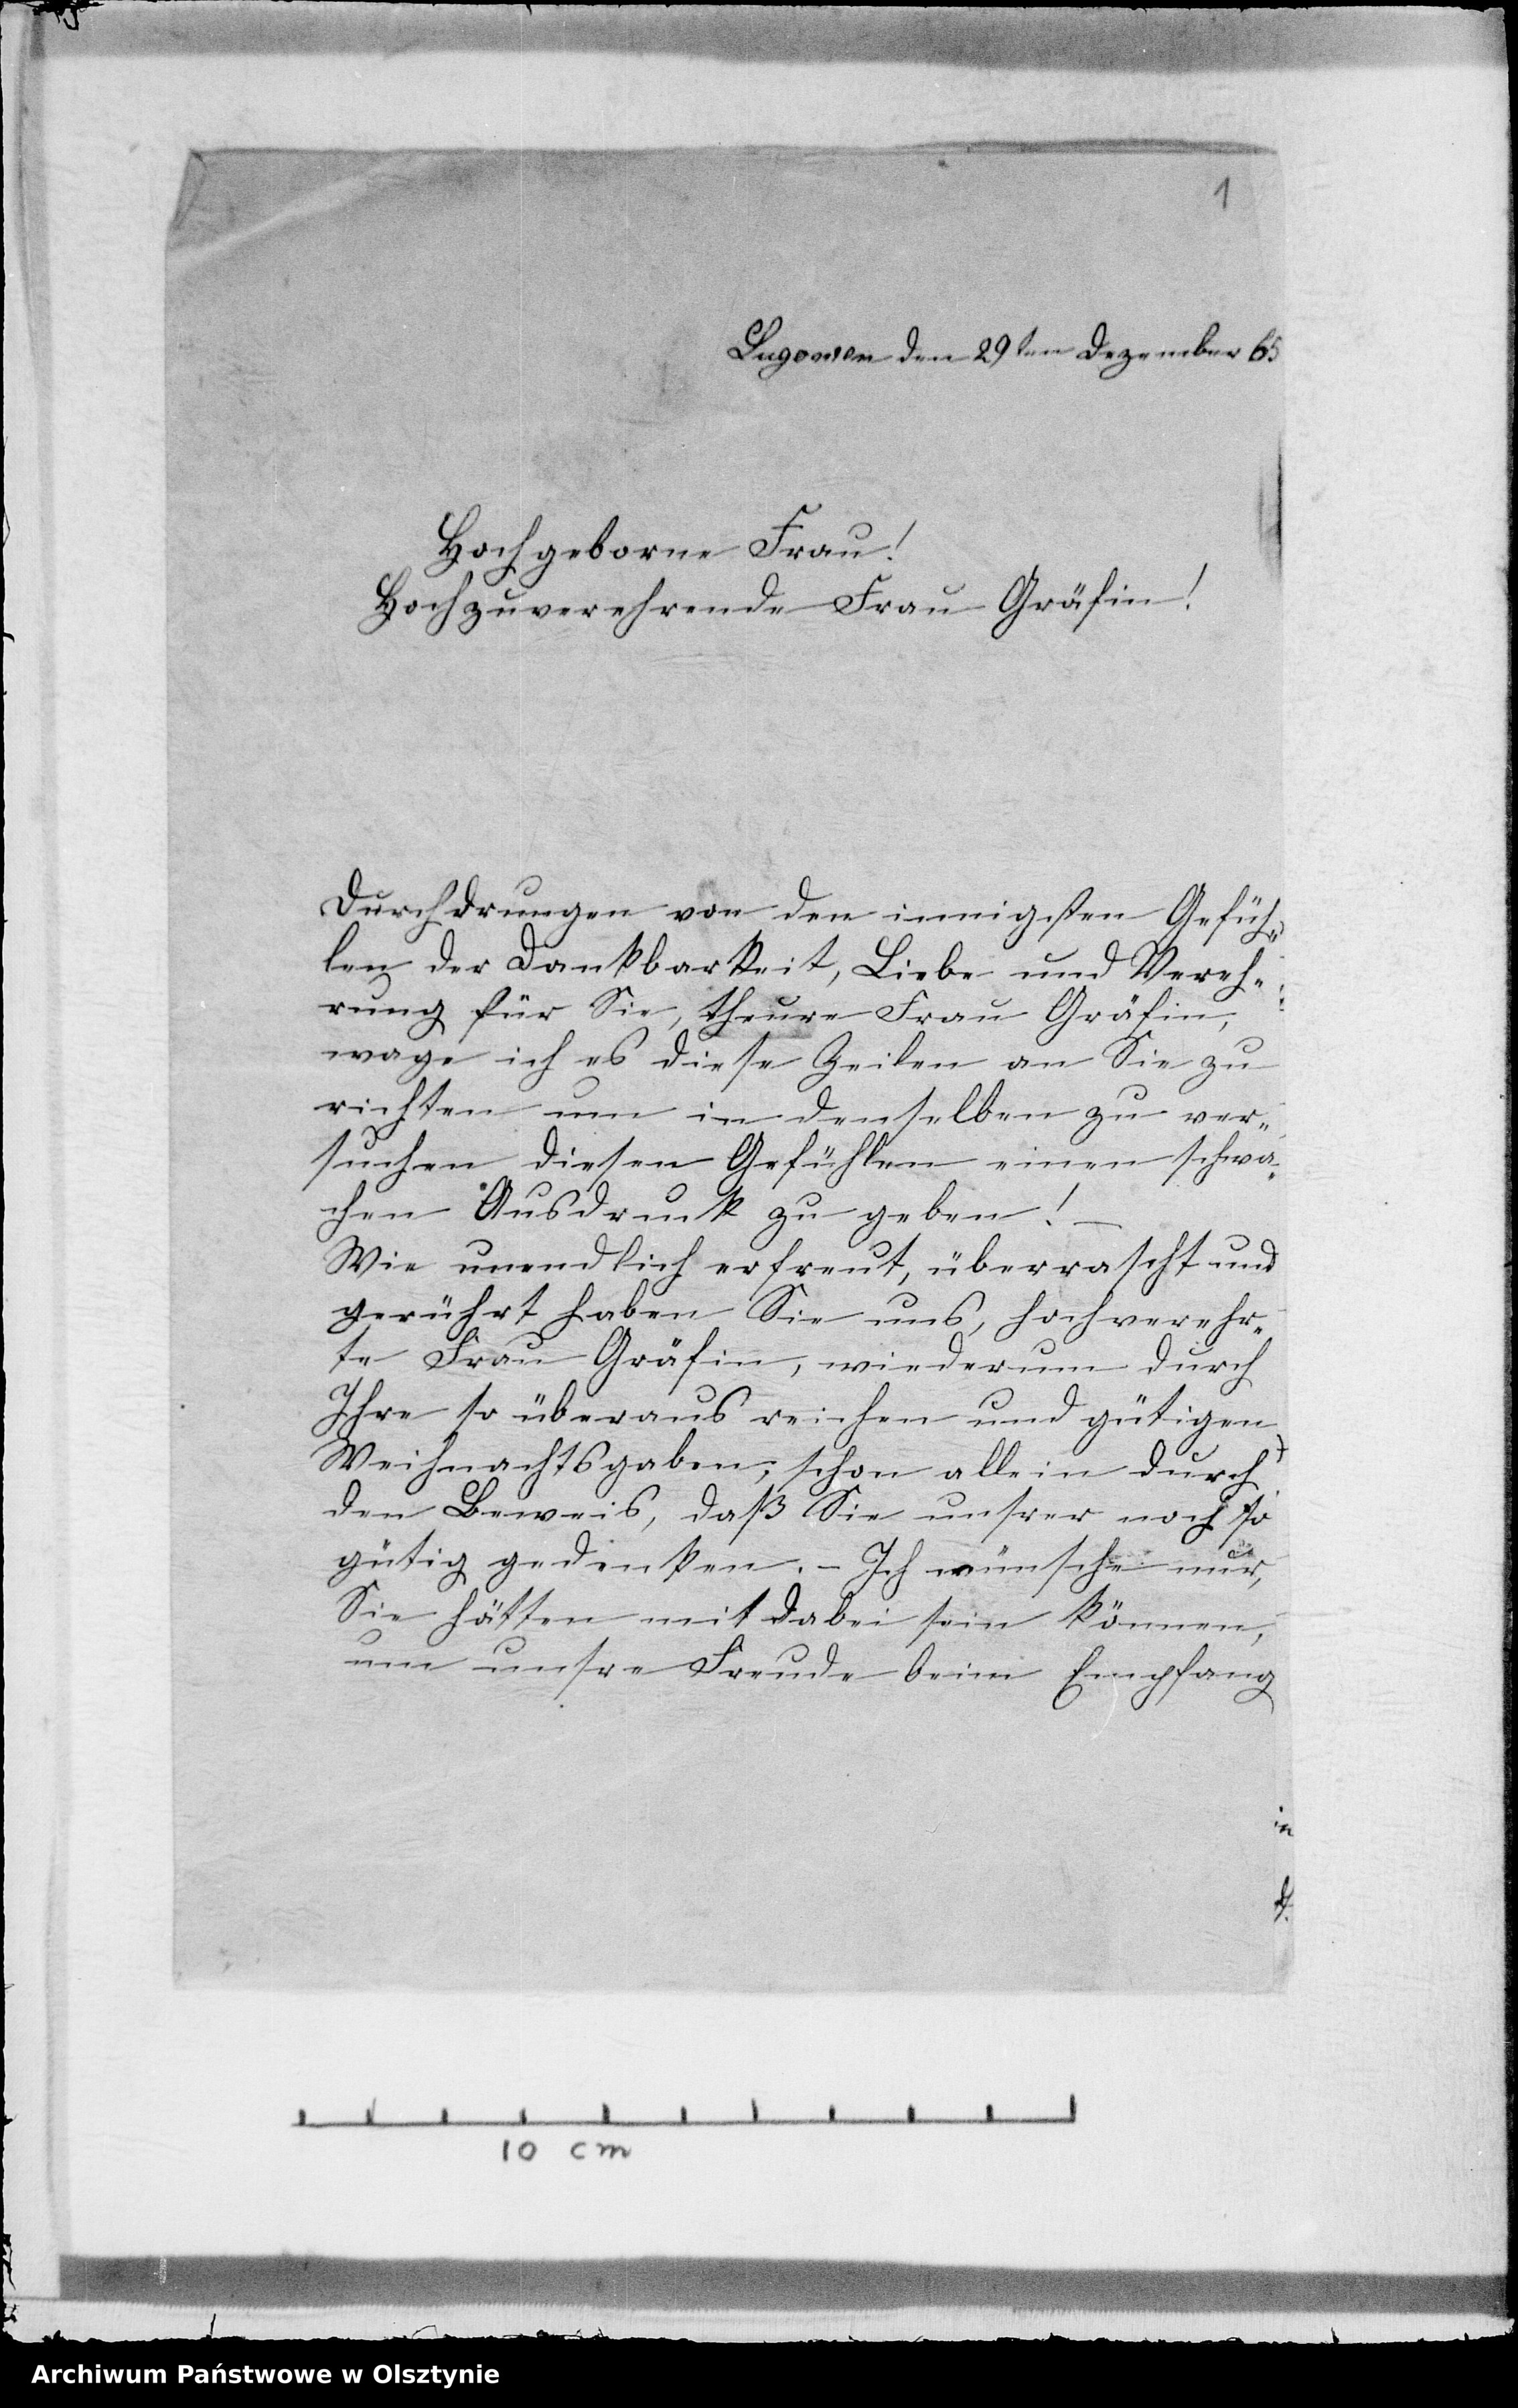 1
Lugowen den 29ten Dezember 65
Hochgeborne Frau!
Hochzuverehrende Frau Gräfin!
Durchdrungen von den innigsten Gefüh„
len der Dankbarkeit, Liebe und Vereh„
rung für Sie, theure Frau Gräfin,
wage ich es diese Zeilen an Sie zu
richten um in denselben zu ver„
suchen diesen Gefühlen einen schwa„
chen Ausdruck zu geben! –
Wie unendlich erfreut, überrascht und
gerührt haben Sie uns, hochverehr„
te Frau Gräfin, wiederum durch
Ihre so überaus reichen und gütigen
Weihnachtsgaben, schon allein durch
den Beweis, daß Sie unsrer noch so
gütig gedenken. – Ich wünsche nur,
Sie hätten mit dabei sein können,
um unsre Freude beim Empfang
in
10 cm
Archiwum Państwowe w Olsztynie